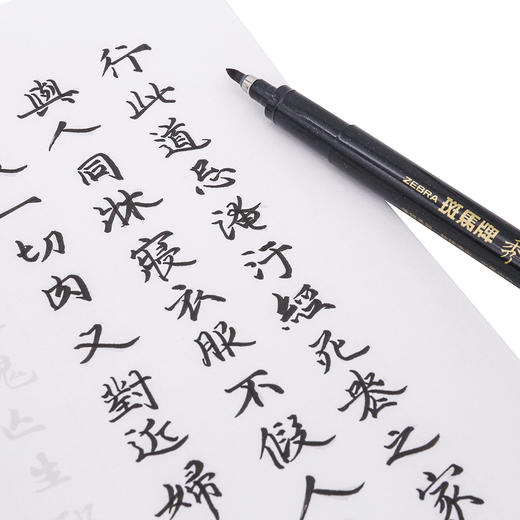 行此道忌淹汙經死喪之家
與人同牀寢衣服不假人
一切肉又對近婦
ZEBRA 斑馬牌